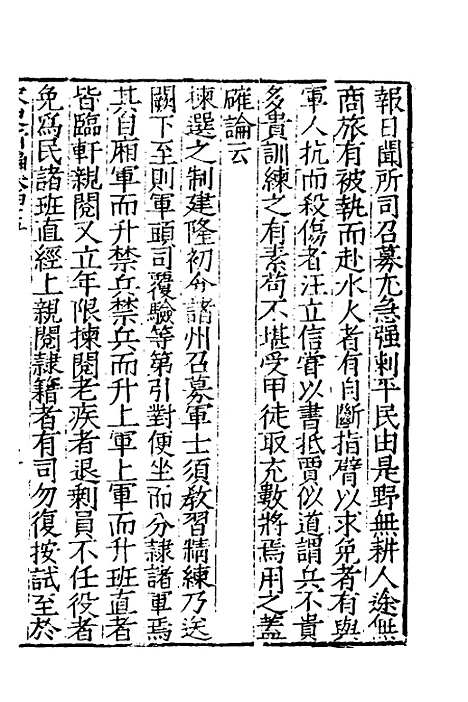 報日聞所司召募尤急強刺平民由是野無耕人途無
商旅有被執而赴水火者有自斷指臂以求免者有與
軍人抗而殺傷者汪立信嘗以書抵賈似道謂兵不貴
多貴訓練之有素苟不堪受甲徒取充數將焉用之蓋
確論云
揀選之制建隆初令諸州召募軍士須教習精練乃送
闕下至則軍頭司覆驗等第引對便坐而分隸諸軍焉
其自廂軍而升禁兵禁兵而升上軍上軍而升班直者
皆臨軒親閱又立年限揀閱老疾者退剩員不任役者
免寫民諸班直經上親閱隷籍者有司勿復按試至於